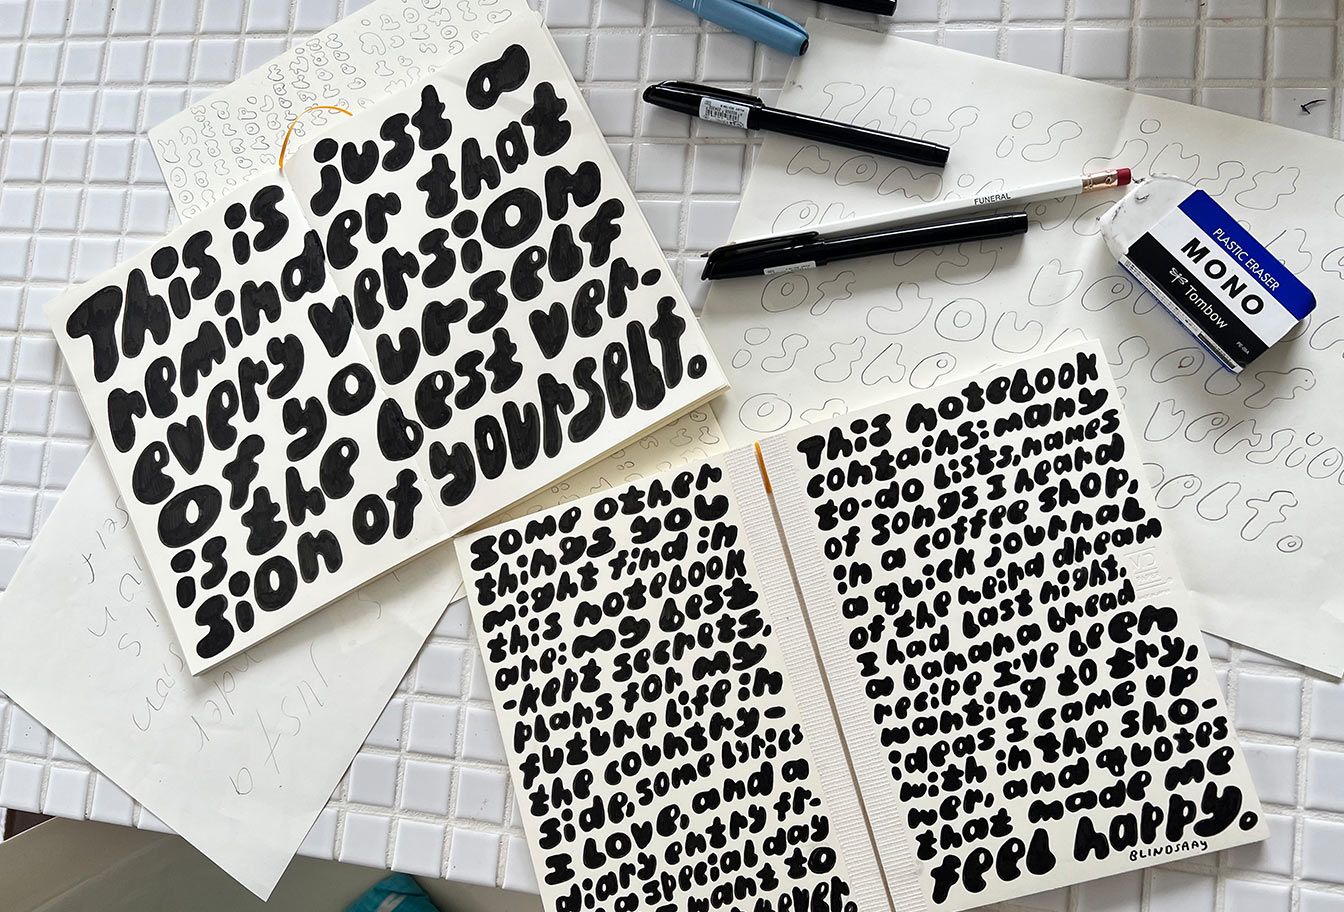 This is just a
reminder that
every version
of yourself
is the best ver-
sion of yourself.
This is just
of yours
FUNERAL
PLASTIC ERASER
MONO
Tombow
some other
things you
might find in
this notebook
are: my best
-kept secrets,
plans for my
future life in
the country-
side, some lyrics
I love, and a
diary entry fr-
a special day
I want to
ever.
This notebook
contains: many
to-do lists, names
of songs I heard
in a coffee shop,
a quick journal
of the weird dream
I had last night,
a banana bread
recipe I've been
wanting to try,
ideas I came up
with in the sho-
wer, and quotes
that made me
feel happy.
BLINDSAAY
just a